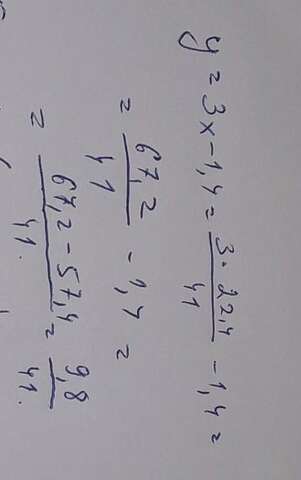 y = 3x - 1,4 = 3 · 22,4 / 41 - 1,4 =
= 67,2 / 41 - 1,4 =
= 67,2 - 57,4 / 41 = 9,8 / 41.